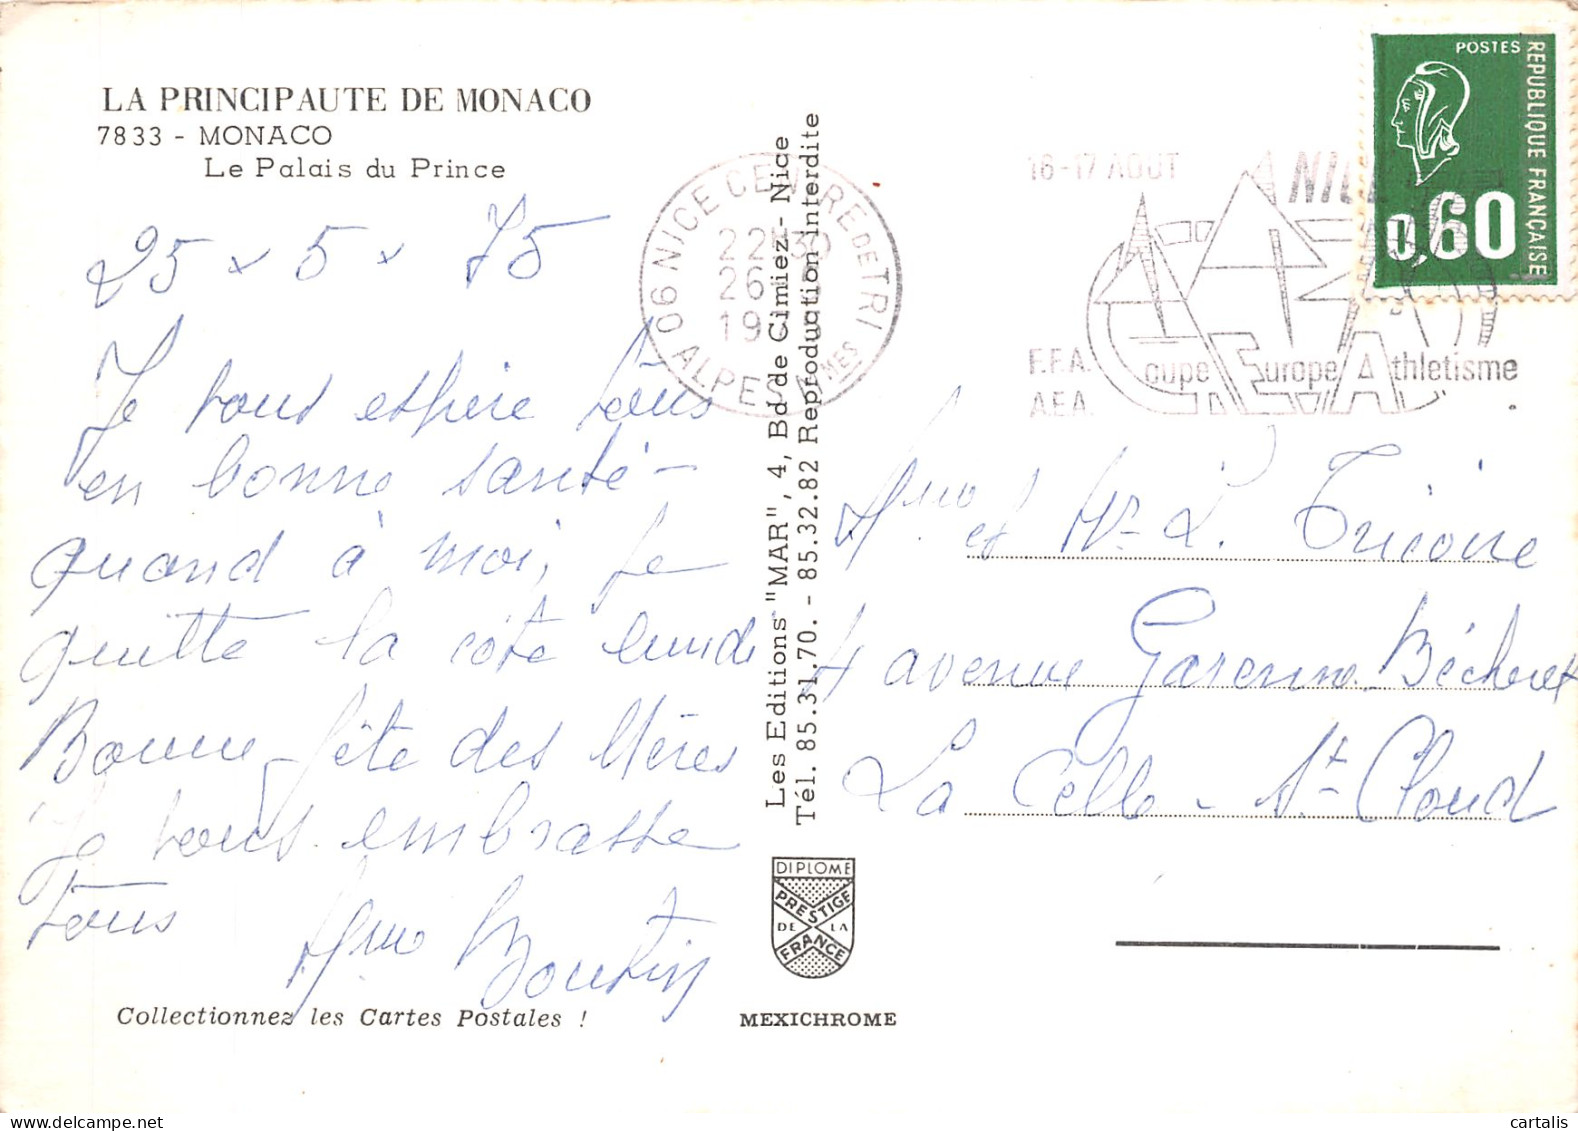 LA PRINCIPAUTE DE MONACO
7833 - MONACO
Le Palais du Prince
25 x 5 x 75
Je vous espère tous
en bonne santé -
quand à moi, je
quitte la côte lundi
Bonne fête des Mères
Je vous embrasse
tous
Mme Boutin
Collectionnez les Cartes Postales !
Les Editions "MAR", 4, Bd de Cimiez - Nice
Tél. 85.31.70. - 85.32.82 Reproduction interdite
DIPLOME
PRESTIGE
DE LA
FRANCE
MEXICHROME
06 NICE CENTRE DE TRI
22H30
26
19
ALPES MMES
16-17 AOUT
NICE
F.F.A.
A.E.A.
Coupe Europe Athletisme
POSTES
REPUBLIQUE FRANÇAISE
0,60
Mme et Mr L. Tricoire
4 avenue Garenne Bécheret
La Celle - St Cloud
cartalis.com